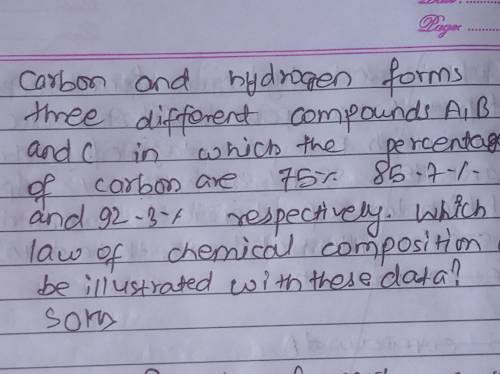 Page:
Carbon and hydrogen forms
three different compounds A, B
and C in which the percentag
of carbon are 75% 85.7%
and 92.3% respectively. Which
law of chemical composition
be illustrated with these data?
Soln